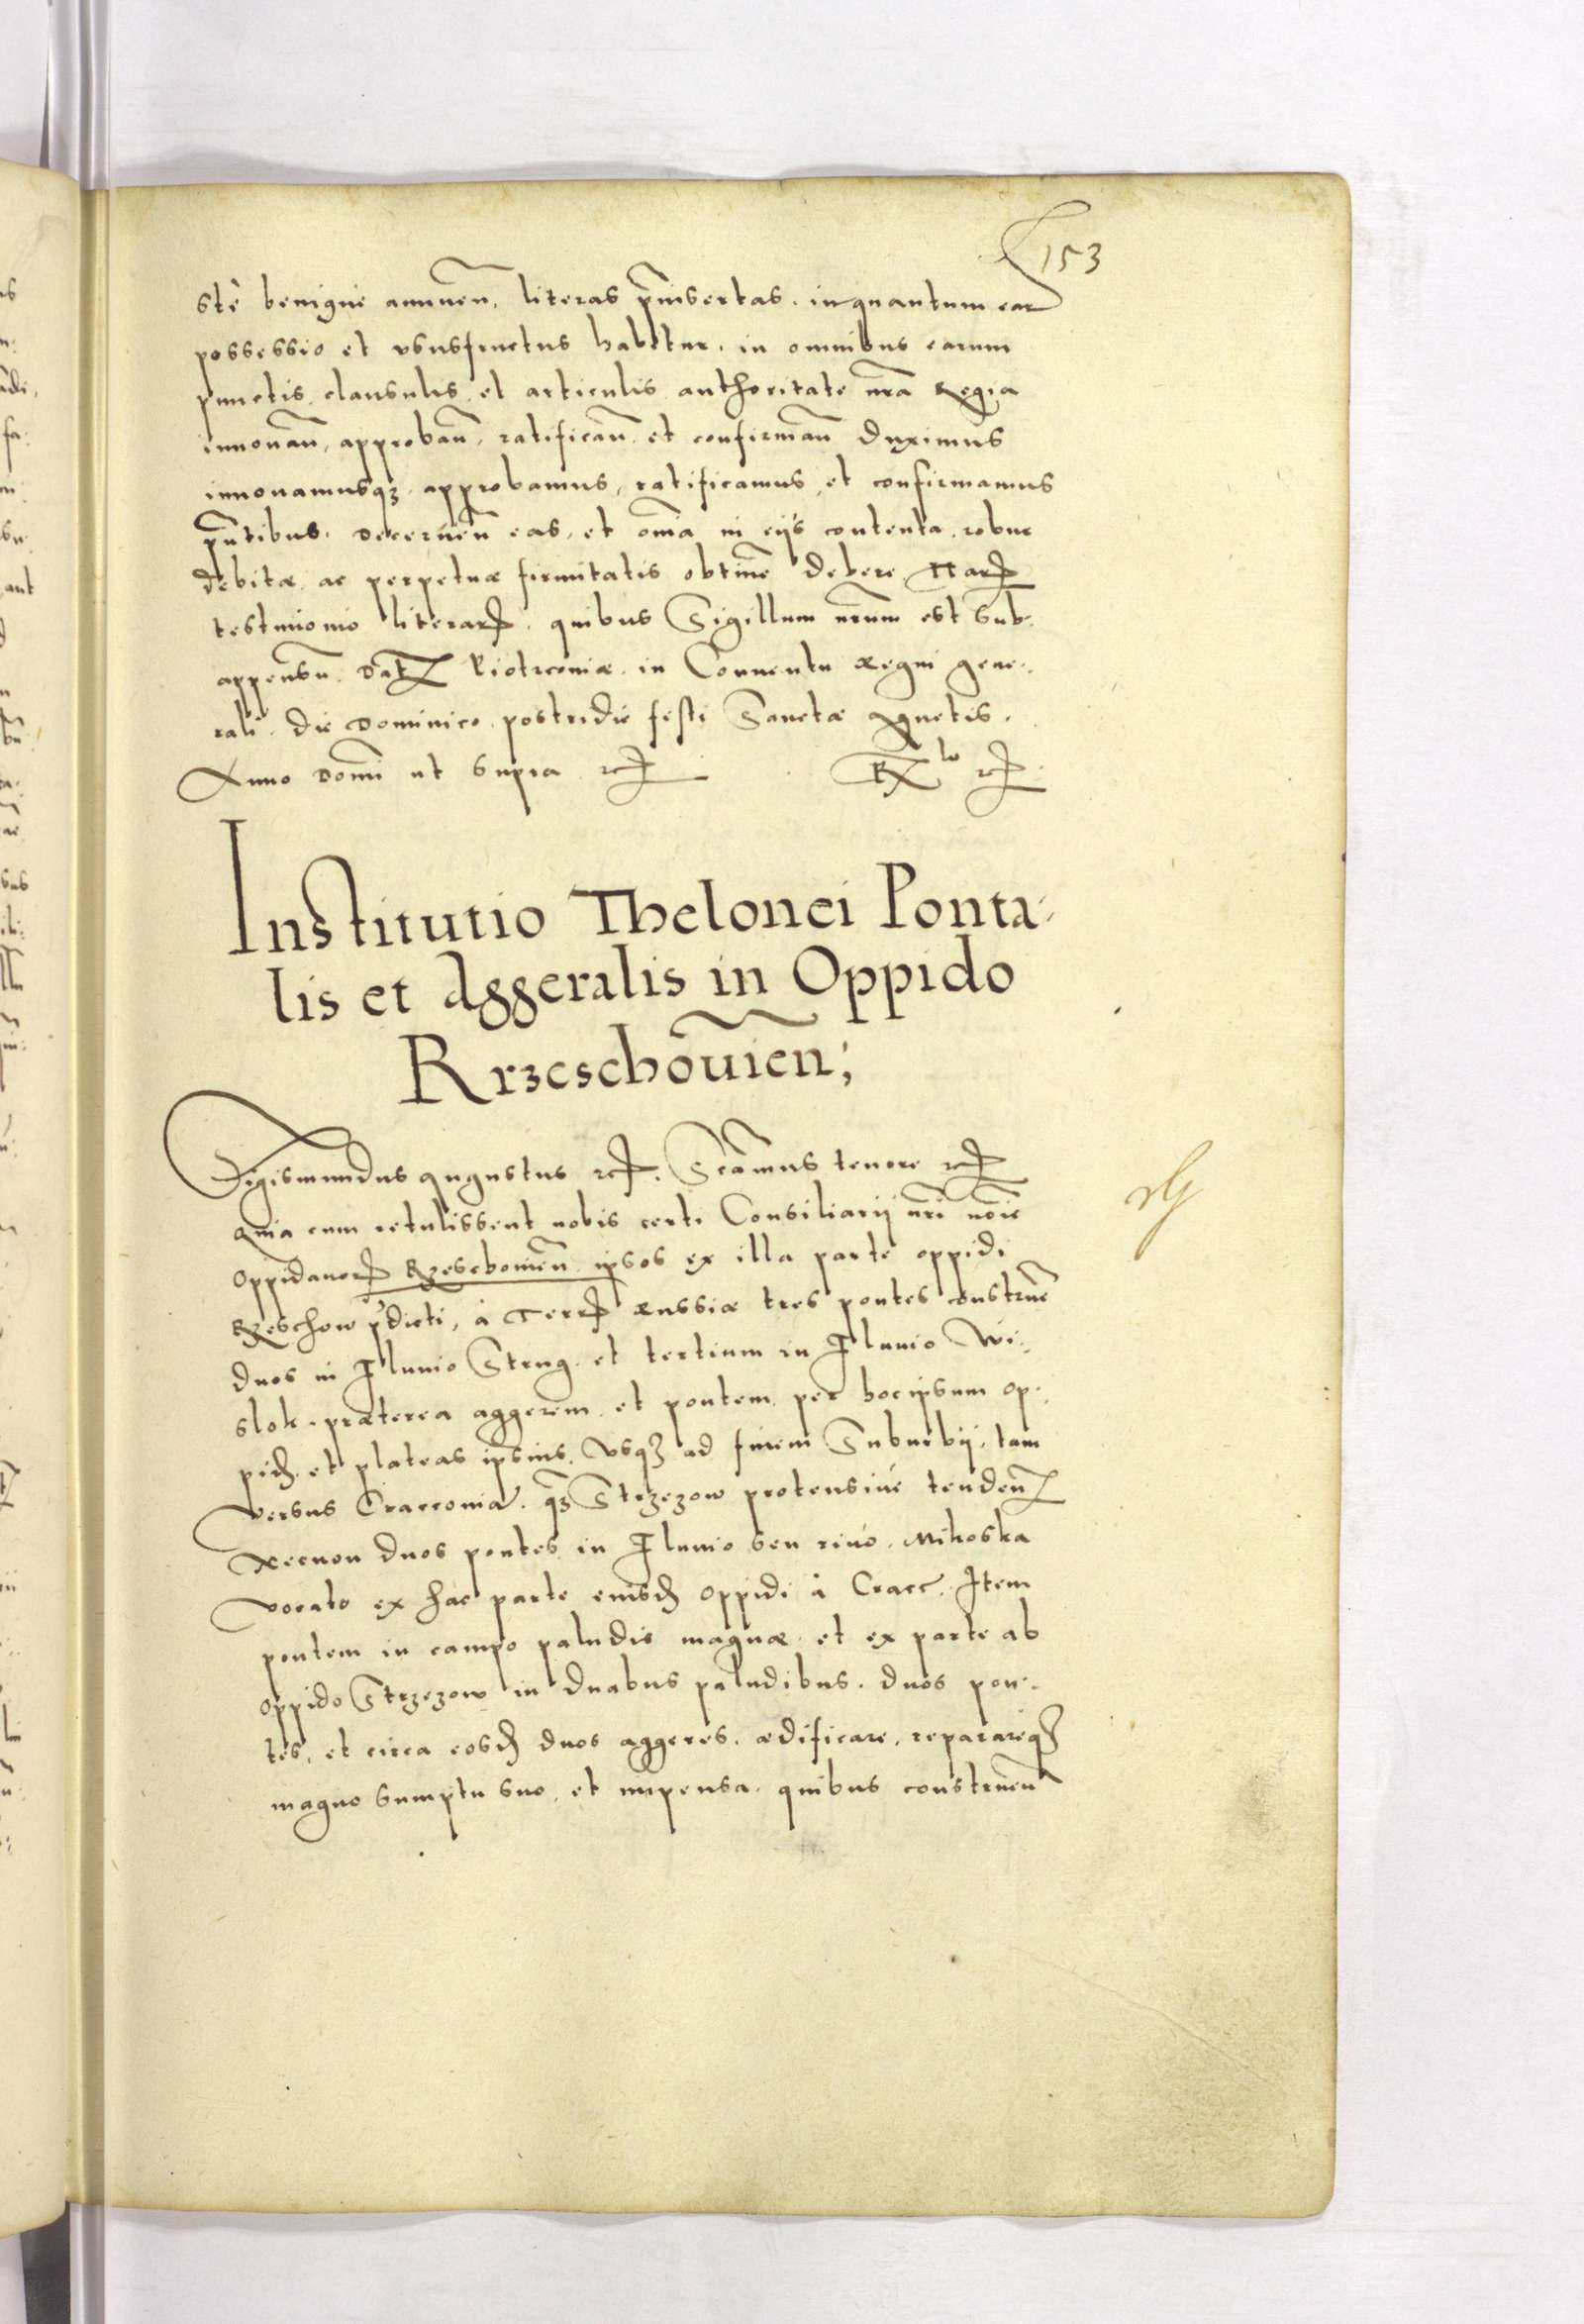 153
ste benigne annuen̄, literas p̄insertas, inquantum ear
possessio et ususfructus habetur, in omnibus earum
punctis, clausulis, et articulis authoritate nr̄a Regia
innouan̄, approban̄, ratifican̄ et confirman̄ duximus
innouamusqʒ, approbamus, ratificamus, et confirmamus
pn̄tibus, decernen̄ eas, et om̄a in eijs contenta, robur
debitæ ac perpetuæ firmitatis obtinē debere Har
testimonio literar, quibus Sigillum nr̄um est sub-
appensū. Dat Piotrcouiæ in Conuentu Regni gene-
rali die Dominico postridie festi Sanctæ Agnetis,
Anno Domi ut supra rc
Institutio Thelonei Ponta-
lis et Aggeralis in Oppido
Rrzeschouien̄;
Sigismundus Augustus rc. Sc̄amus tenore rc
quia cum retulissent nobis certi Consiliarij nr̄i noīe
Oppidanor Rzeschouien̄ ipsos ex illa parte oppidi
Rzeschow p̄dicti, à Terr Russiæ tres pontes construē
duos in Fluuio Strug et tertium in Fluuio Wi-
slok, præterea aggerem et pontem per hoc ipsum op-
pid et plateas ipsius, usqʒ ad finem Suburbij, tam
versus Cracouiā, qʒ Strzezow protensiue tenden̄
Necnon duos pontes in Fluuio seu riuo Mikoska
vocato ex hac parte eiusd oppidi à Cracc. Item
pontem in campo paludis magnæ et ex parte ab
oppido Strzezow in duabus paludibus, duos pon-
tes, et circa eosd duos aggeres, ædificare, reparareqʒ
magno sumptu suo, et impensa, quibus construen̄